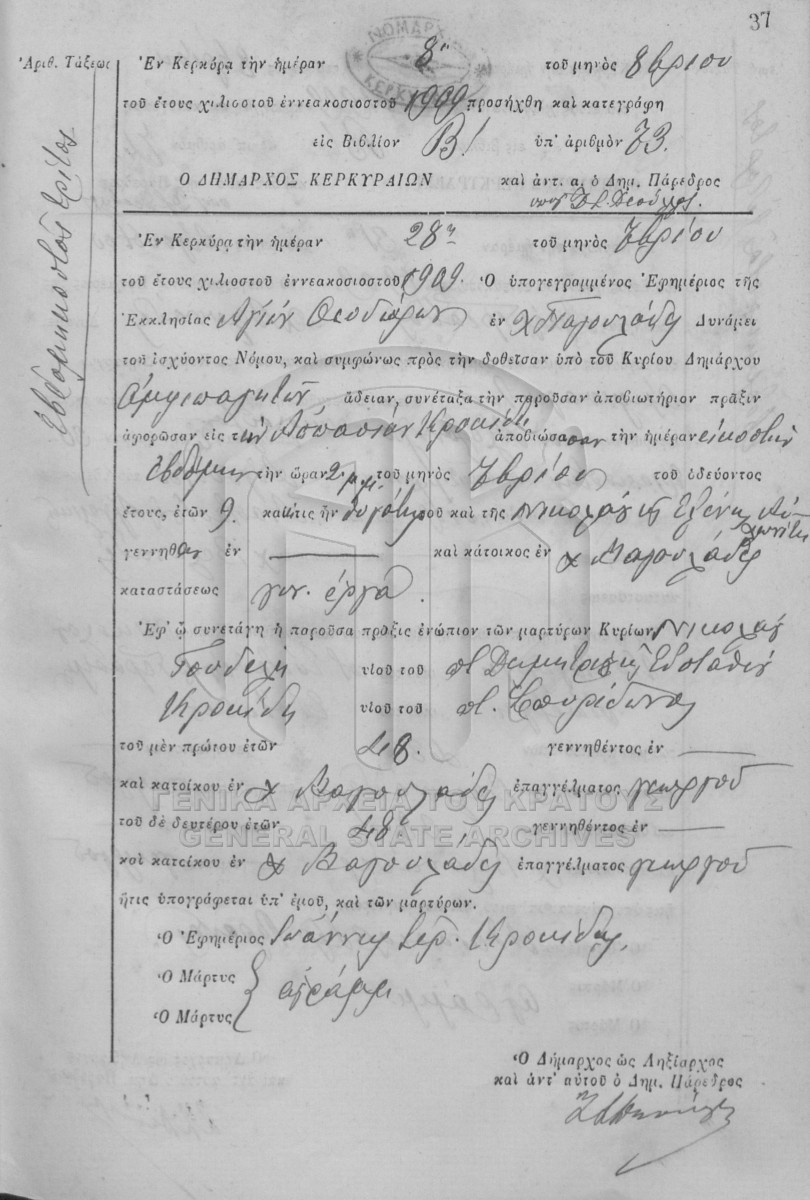 37
Ἀριθ. Τάξεως
Ἑβδομηκοστὸς τρίτος
Ἐν Κερκύρᾳ τὴν ἡμέραν 8η τοῦ μηνὸς 8βρίου
τοῦ ἔτους χιλιοστοῦ ἐννεακοσιοστοῦ 1909 προσήχθη καὶ κατεγράφη
εἰς Βιβλίον Β! ὑπ' ἀριθμὸν 73.
Ὁ ΔΗΜΑΡΧΟΣ ΚΕΡΚΥΡΑΙΩΝ καὶ ἀντ. α. ὁ Δημ. Πάρεδρος
Ἐν Κερκύρᾳ τὴν ἡμέραν 28η τοῦ μηνὸς 7βρίου
τοῦ ἔτους χιλιοστοῦ ἐννεακοσιοστοῦ 1909. Ὁ ὑπογεγραμμένος Ἐφημέριος τῆς
Ἐκκλησίας Ἁγίων Θεοδώρων ἐν χ Βαγουλάδες Δυνάμει
τοῦ ἰσχύοντος Νόμου, καὶ συμφώνως πρὸς τὴν δοθεῖσαν ὑπὸ τοῦ Κυρίου Δημάρχου
Ἀμφιπαγητῶν ἄδειαν, συνέταξα τὴν παροῦσαν ἀποβιωτήριον πρᾶξιν
ἀφορῶσαν εἰς τὴν Ἀσπασίαν Κροκίδη ἀποβιώσασαν τὴν ἡμέραν εἰκοστὴν
ἑβδόμην τὴν ὥραν 2 μ.μ. τοῦ μηνὸς 7βρίου τοῦ ὁδεύοντος
ἔτους, ἐτῶν 9. καὶ ἥτις ἦν θυγάτηρ τοῦ καὶ τῆς Νικολάου κ Ἑλένης
γεννηθ ἐν — καὶ κάτοικος ἐν χ Βαγουλάδες
καταστάσεως γυν. ἐργα.
Ἐφ' ᾧ συνετάγη ἡ παροῦσα πρᾶξις ἐνώπιον τῶν μαρτύρων Κυρίων Νικολάου
Τσουδελῆ υἱοῦ τοῦ π Δημητρίου κ Εὐσταθίου
Κροκίδη υἱοῦ τοῦ π. Σπυρίδωνος
τοῦ μὲν πρώτου ἐτῶν 48. γεννηθέντος ἐν —
καὶ κατοίκου ἐν χ Βαγουλάδες ἐπαγγέλματος γεωργοῦ
ΓΕΝΙΚΑ ΑΡΧΕΙΑ ΤΟΥ ΚΡΑΤΟΥΣ
τοῦ δὲ δευτέρου ἐτῶν 48 γεννηθέντος ἐν —
GENERAL STATE ARCHIVES
καὶ κατοίκου ἐν χ Βαγουλάδες ἐπαγγέλματος γεωργοῦ
ἥτις ὑπογράφεται ὑπ' ἐμοῦ, καὶ τῶν μαρτύρων.
Ὁ Ἐφημέριος Ἰωάννης Ἱερ. Κροκίδης
Ὁ Μάρτυς
ἀγράμμ.
Ὁ Μάρτυς
Ὁ Δήμαρχος ὡς Ληξίαρχος
καὶ ἀντ' αὐτοῦ ὁ Δημ. Πάρεδρος